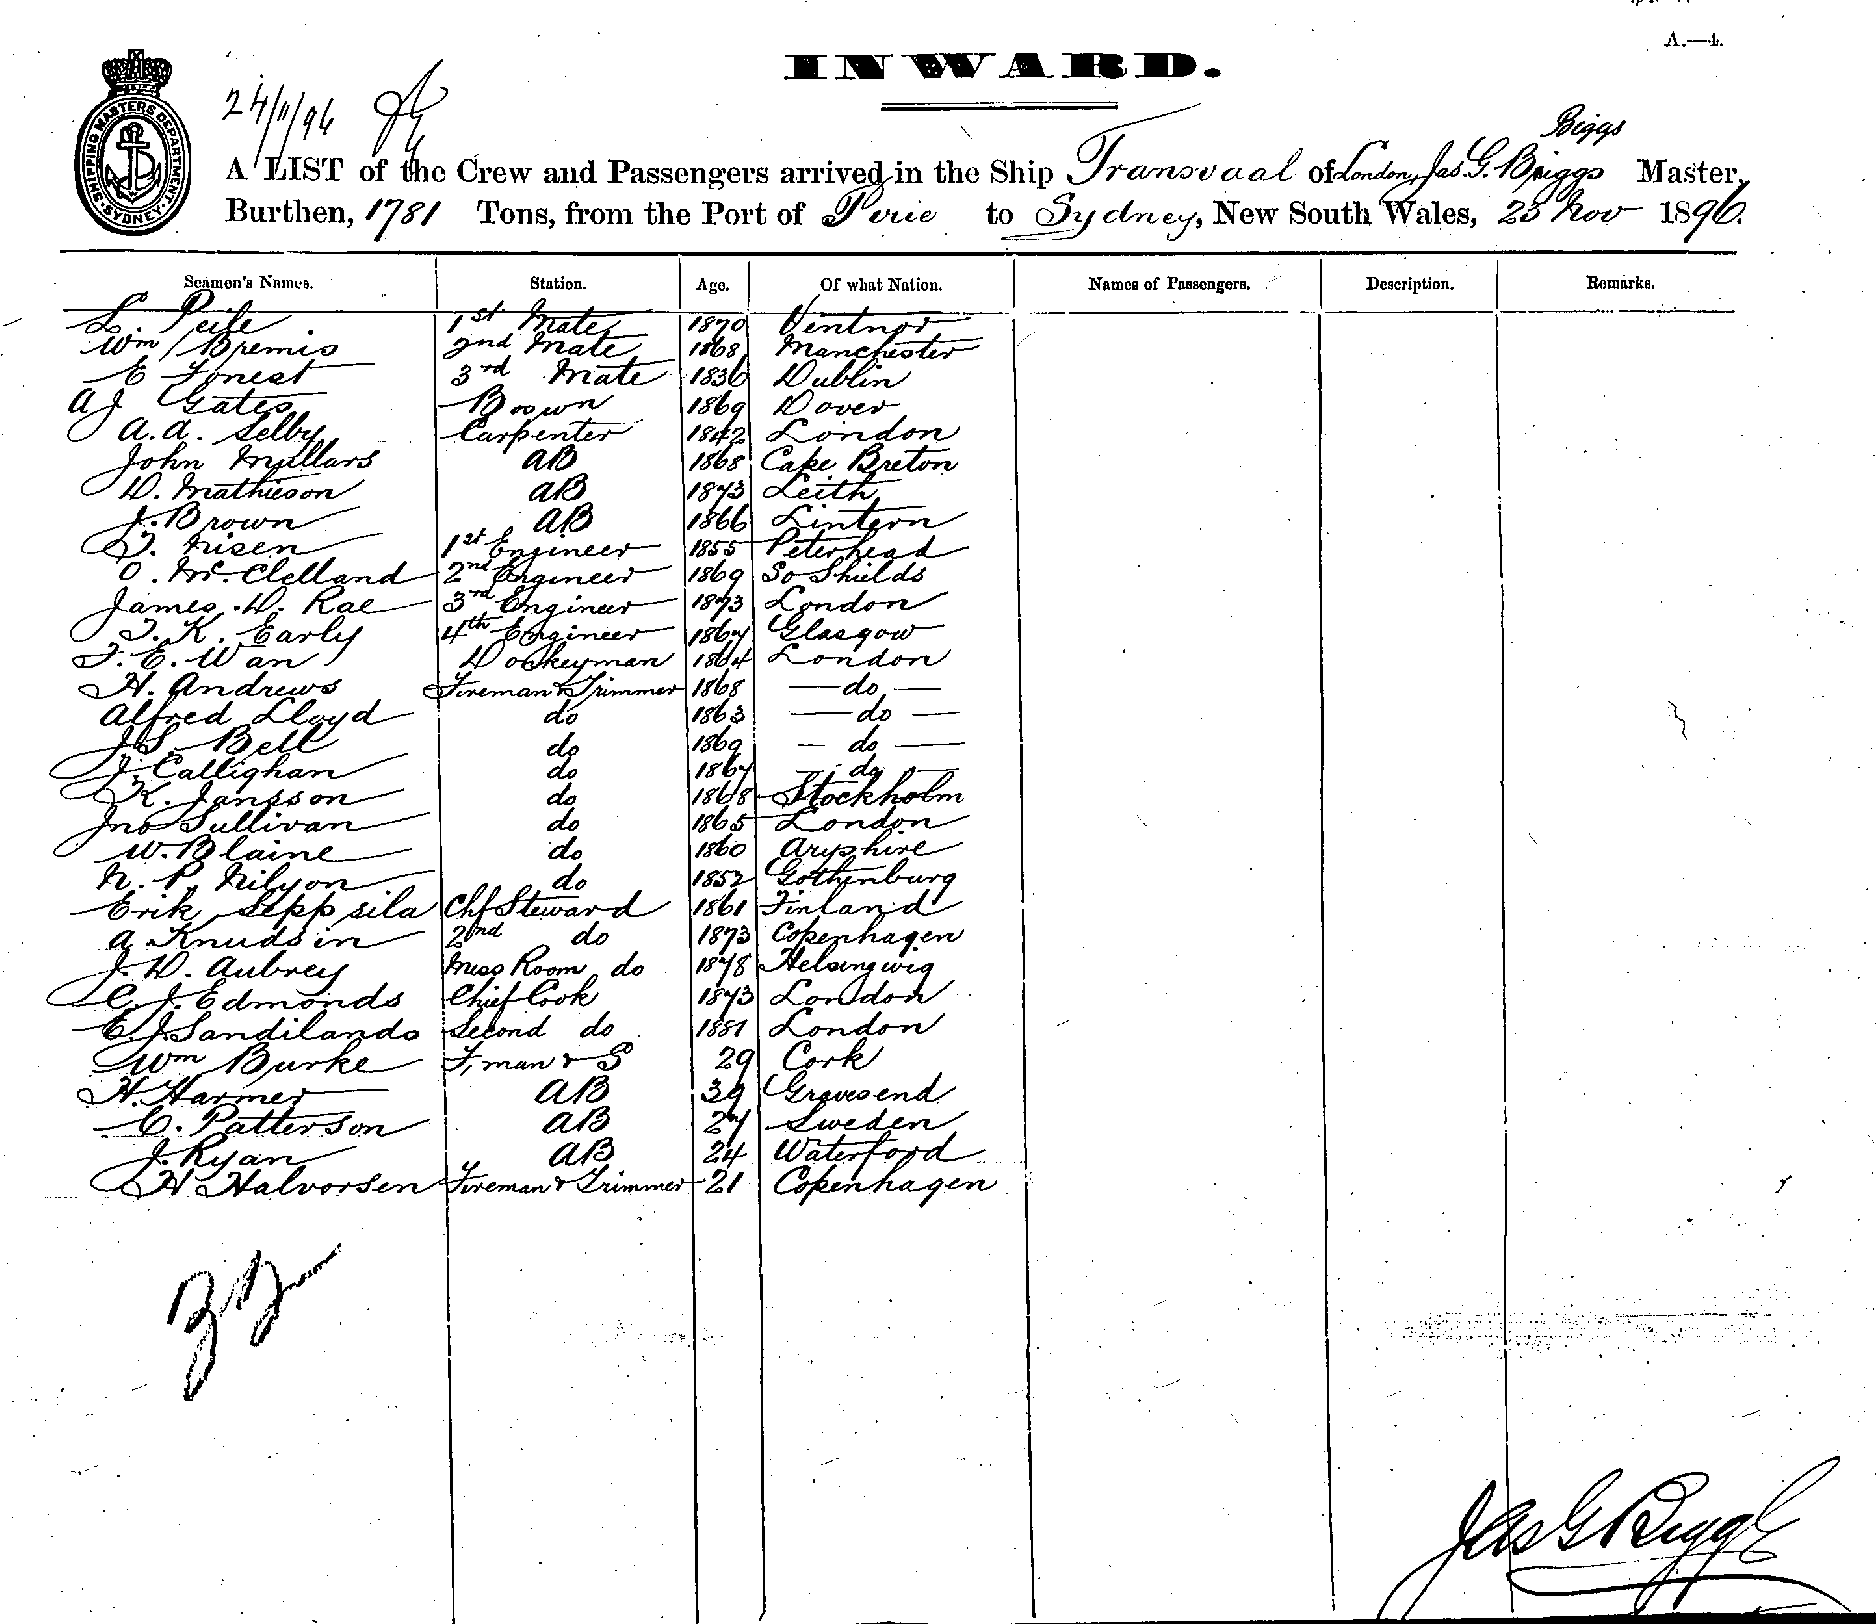 A.—4.
INWARD.
SHIPPING MASTERS DEPARTMENT SYDNEY
24/11/96
Biggs
A LIST of the Crew and Passengers arrived in the Ship Transvaal of London, Jas G. Briggs Master,
Burthen, 1781 Tons, from the Port of Pirie to Sydney, New South Wales, 23 Nov 1896.
Seamen's Names. Station. Age. Of what Nation. Names of Passengers. Description. Remarks.
L. Peile 1st Mate 1870 Ventnor
Wm Bremis 2nd Mate 1868 Manchester
E Forrest 3rd Mate 1836 Dublin
A J Gates Boswn 1869 Dover
A. A. Selby Carpenter 1842 London
John Millars AB 1868 Cape Breton
D. Mathieson AB 1873 Leith
J. Brown AB 1866 Lintern
T. Nisen 1st Engineer 1855 Peterhead
O. Mc Clelland 2nd Engineer 1869 So Shields
James D. Rae 3rd Engineer 1873 London
T. K. Early 4th Engineer 1867 Glasgow
T. E. Wan Donkeyman 1864 London
H. Andrews Fireman & Trimmer 1868 — do —
Alfred Lloyd do 1863 — do —
J S. Bell do 1869 — do —
J. Callighan do 1867 — do —
K. Jansson do 1868 Stockholm
Jno Sullivan do 1865 London
W. Blaine do 1860 Aryshire
N. P. Nilyon do 1852 Gothenburg
Erik Seppsila Chf Steward 1861 Finland
A Knudsin 2nd do 1873 Copenhagen
J. D. Aubrey Mess Room do 1878 Helsingwig
C. J. Edmonds Chief Cook 1873 London
E J Sandilands Second do 1881 London
Wm Burke F, man & S 29 Cork
H. Harmer AB 39 Gravesend
C. Patterson AB 27 Sweden
J. Ryan AB 24 Waterford
H Halvorsen Fireman & Trimmer 21 Copenhagen
Jas G Biggs